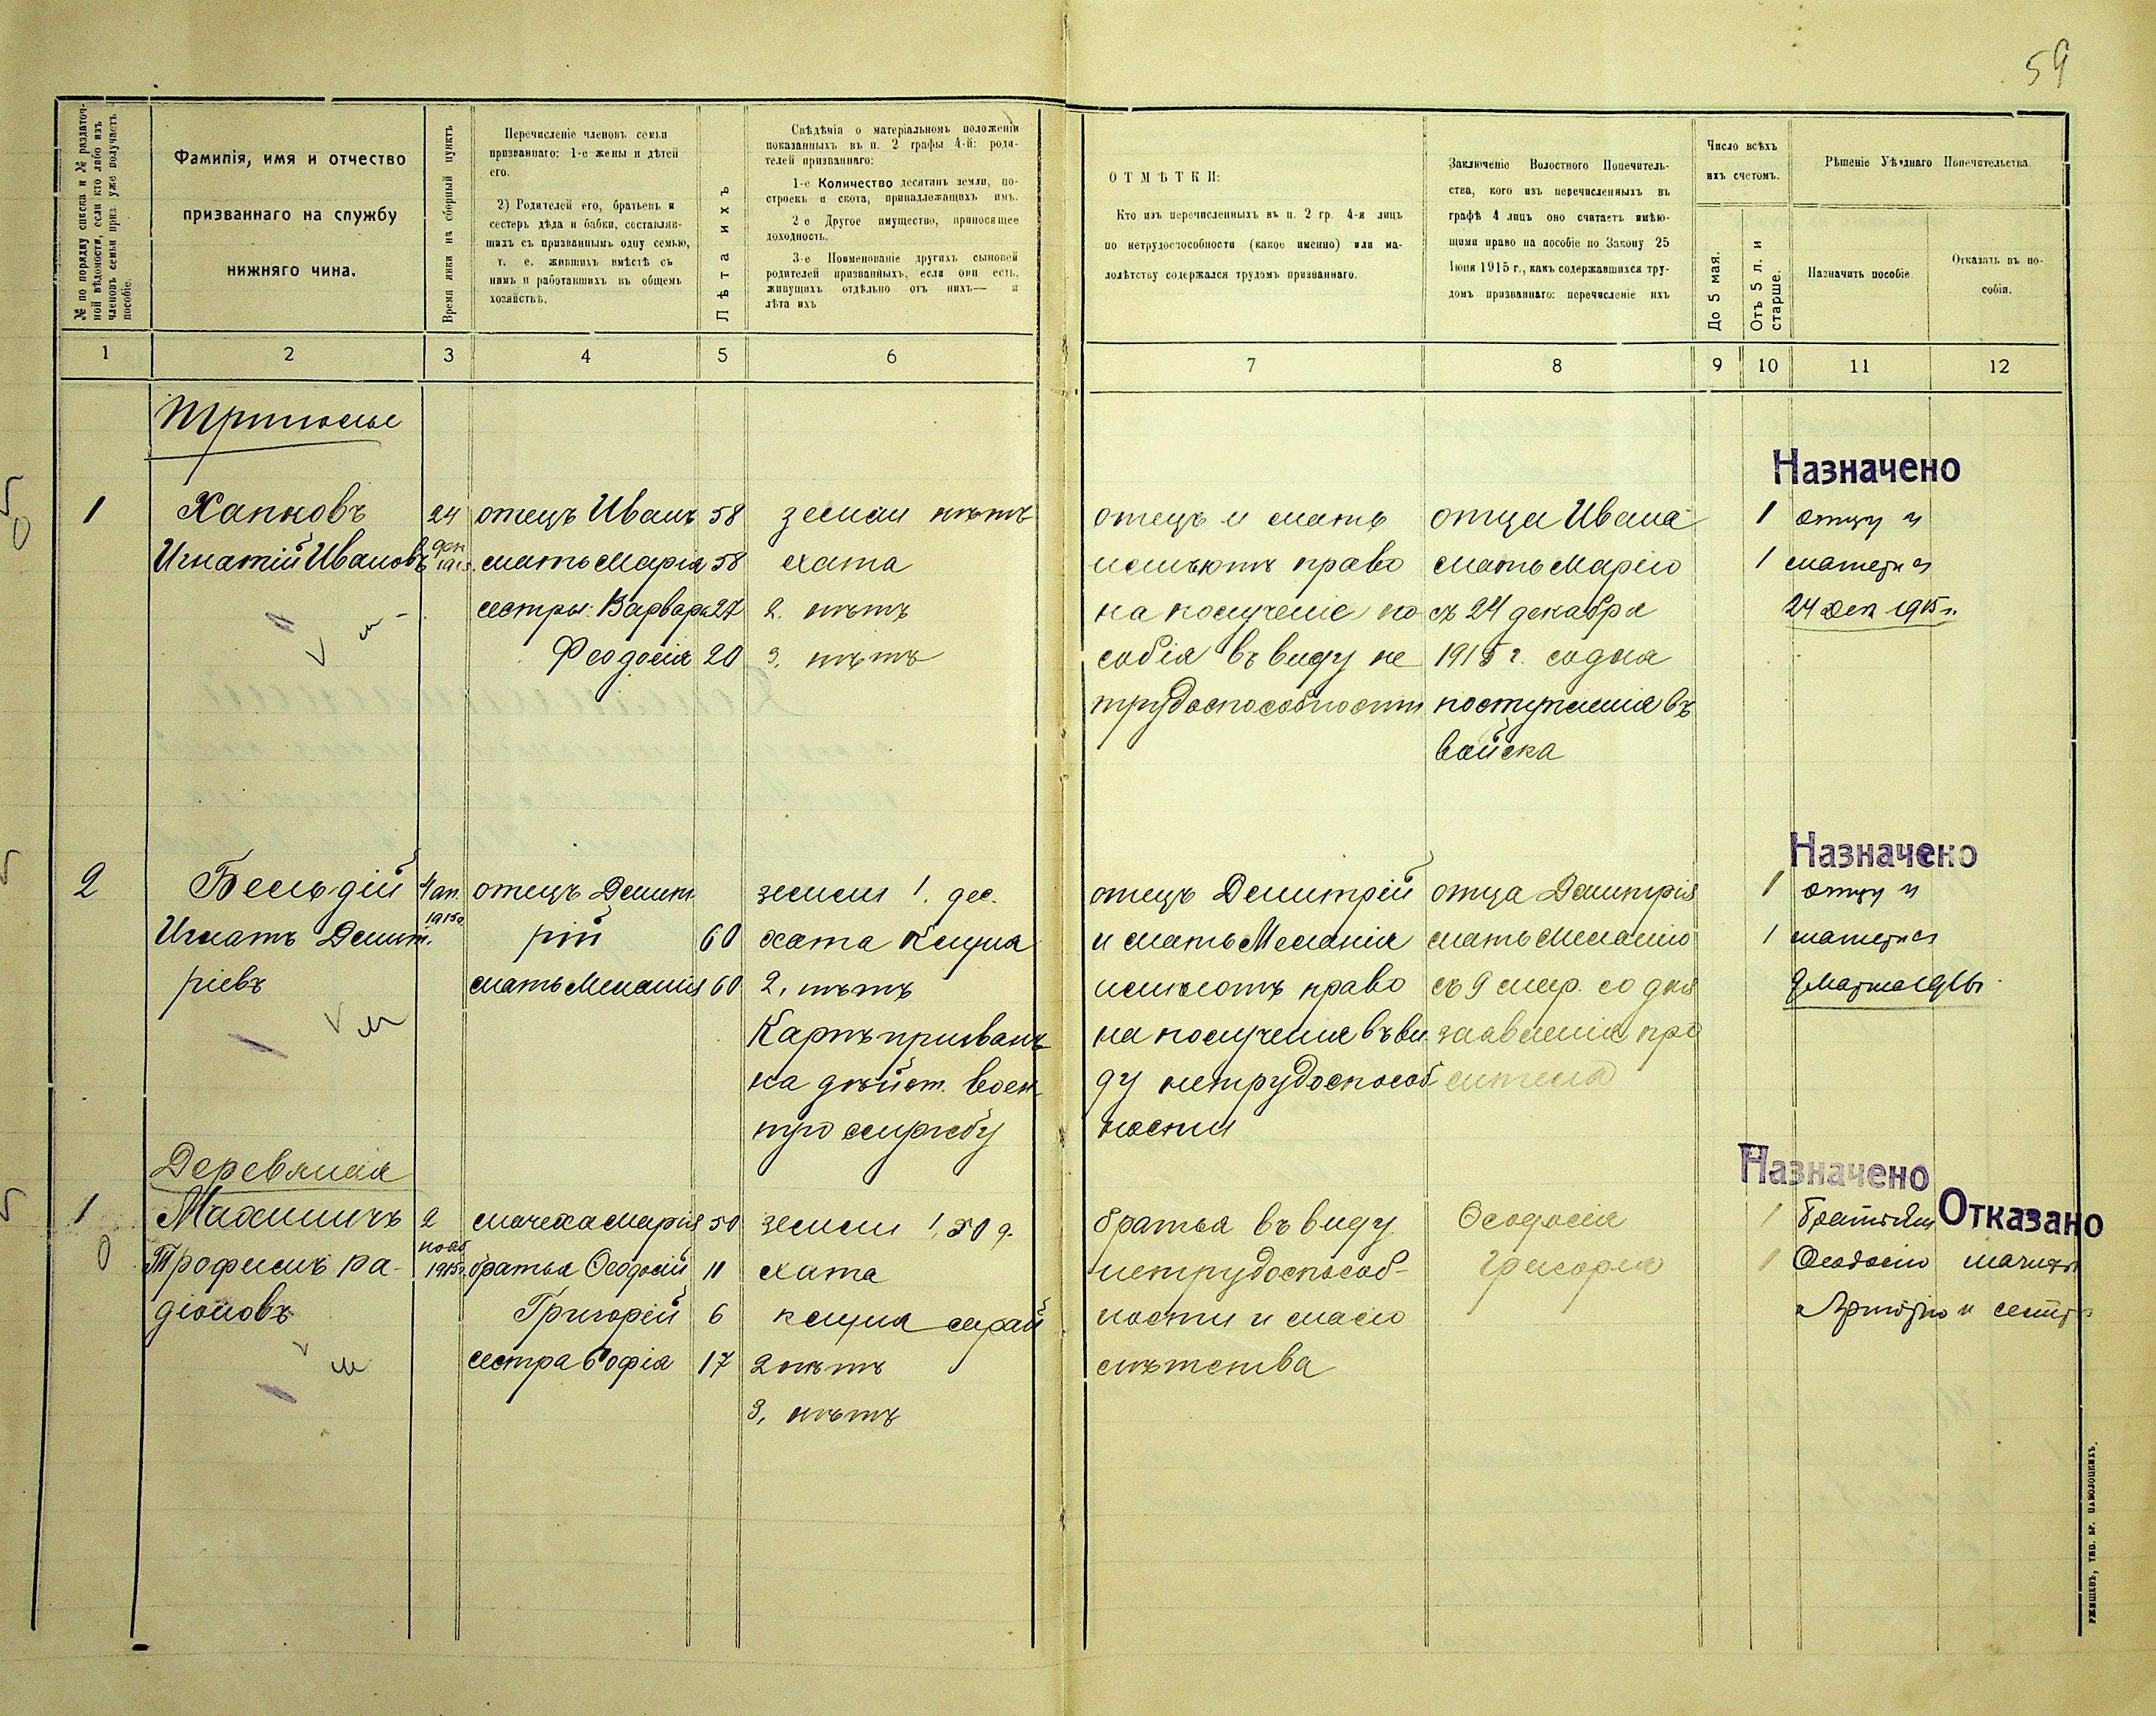 59
№ по порядку списка и № раздаточ-
ной вѣдомости, если кто либо изъ
членовъ семьи приз. уже получаетъ
пособіе.
Фамилія, имя и отчество
призваннаго на службу
нижняго чина.
Время явки на сборный пунктъ
Перечисленіе членовъ семьи
призваннаго: 1-е жены и дѣтей
его.
2) Родителей его, братьевъ и
сестеръ дѣда и бабки, составляв-
шихъ съ призваннымъ одну семью,
т. е. жившихъ вмѣстѣ съ
нимъ и работавшихъ въ общемъ
хозяйствѣ.
Лѣта ихъ
Свѣдѣнія о матеріальномъ положеніи
показанныхъ въ п. 2 графы 4-й: роди-
телей призваннаго:
1-е Количество десятинъ земли, по-
строекъ и скота, принадлежащихъ имъ.
2-е Другое имущество, приносящее
доходность.
3-е Поименованіе другихъ сыновей
родителей призванныхъ, если они есть,
живущихъ отдѣльно отъ нихъ— и
лѣта ихъ
ОТМѢТКИ:
Кто изъ перечисленныхъ въ п. 2 гр. 4-я лицъ
по нетрудоспособности (какое именно) или ма-
лолѣтству содержался трудомъ призваннаго.
Заключеніе Волостного Попечитель-
ства, кого изъ перечисленныхъ въ
графѣ 4 лицъ оно считаетъ имѣю-
щими право на пособіе по Закону 25
Іюня 1915 г., какъ содержавшихся тру-
домъ призваннаго: перечисленіе ихъ
Число всѣхъ
ихъ счетомъ.
До 5 мая.
Отъ 5 л. и
старше.
Рѣшеніе Уѣзднаго Попечательства
Назначить пособіе
Отказать въ по-
собіи.
1 2 3 4 5 6 7 8 9 10 11 12
Назначено
1 Хапковъ 24 отецъ Иванъ 58 земли нѣтъ отецъ и мать отца Ивана 1 отцу и
Игнатій Ивановъ дек 1915. мать Марія 58 хата имѣютъ право мать Марію 1 матери съ
сестры: Варвара 27 2. нѣтъ на полученіе по съ 24 декабря 24 дек 1915 г.
Феодосія 20 3, нѣтъ собія въ виду не 1915 г. со дня
трудоспособности поступленія въ
войска
Назначено
2 Бельдій 4 ап. отецъ Димит земли 1. дес. отецъ Димитрій отца Димитрія 1 отцу и
Игнатъ Димит. 1915 г рій 60 хата клуня и мать Меланія мать Меланію 1 матери съ
ріевъ мать Меланія 60 2, нѣтъ имѣютъ право съ 9 мар. со дня 9 Марта 1916 г.
Карпъ призванъ на полученіе въ ви заявленія про
на дѣйст. воен ду нетрудоспособ сителя
ную службу ности
Деревяная
Назначено
Отказано
1 Махиничъ 2 мачеха Марія 50 земли 1,50 д. братья въ виду Ѳеодосія 1 Братьямъ
Трофимъ Ра- нояб 1915 г. братья Ѳеодосій 11 хата нетрудоспособ- Григорія 1 Ѳеодосію мачихѣ
діоновъ Григорій 6 клуня сарай ности и мало и Григорію и сестрѣ
сестра Софія 17 2 нѣтъ лѣтства
3, нѣтъ
РЖИЩЕВЪ, ТИП. БР. ПАВОЛОЦКИХЪ.